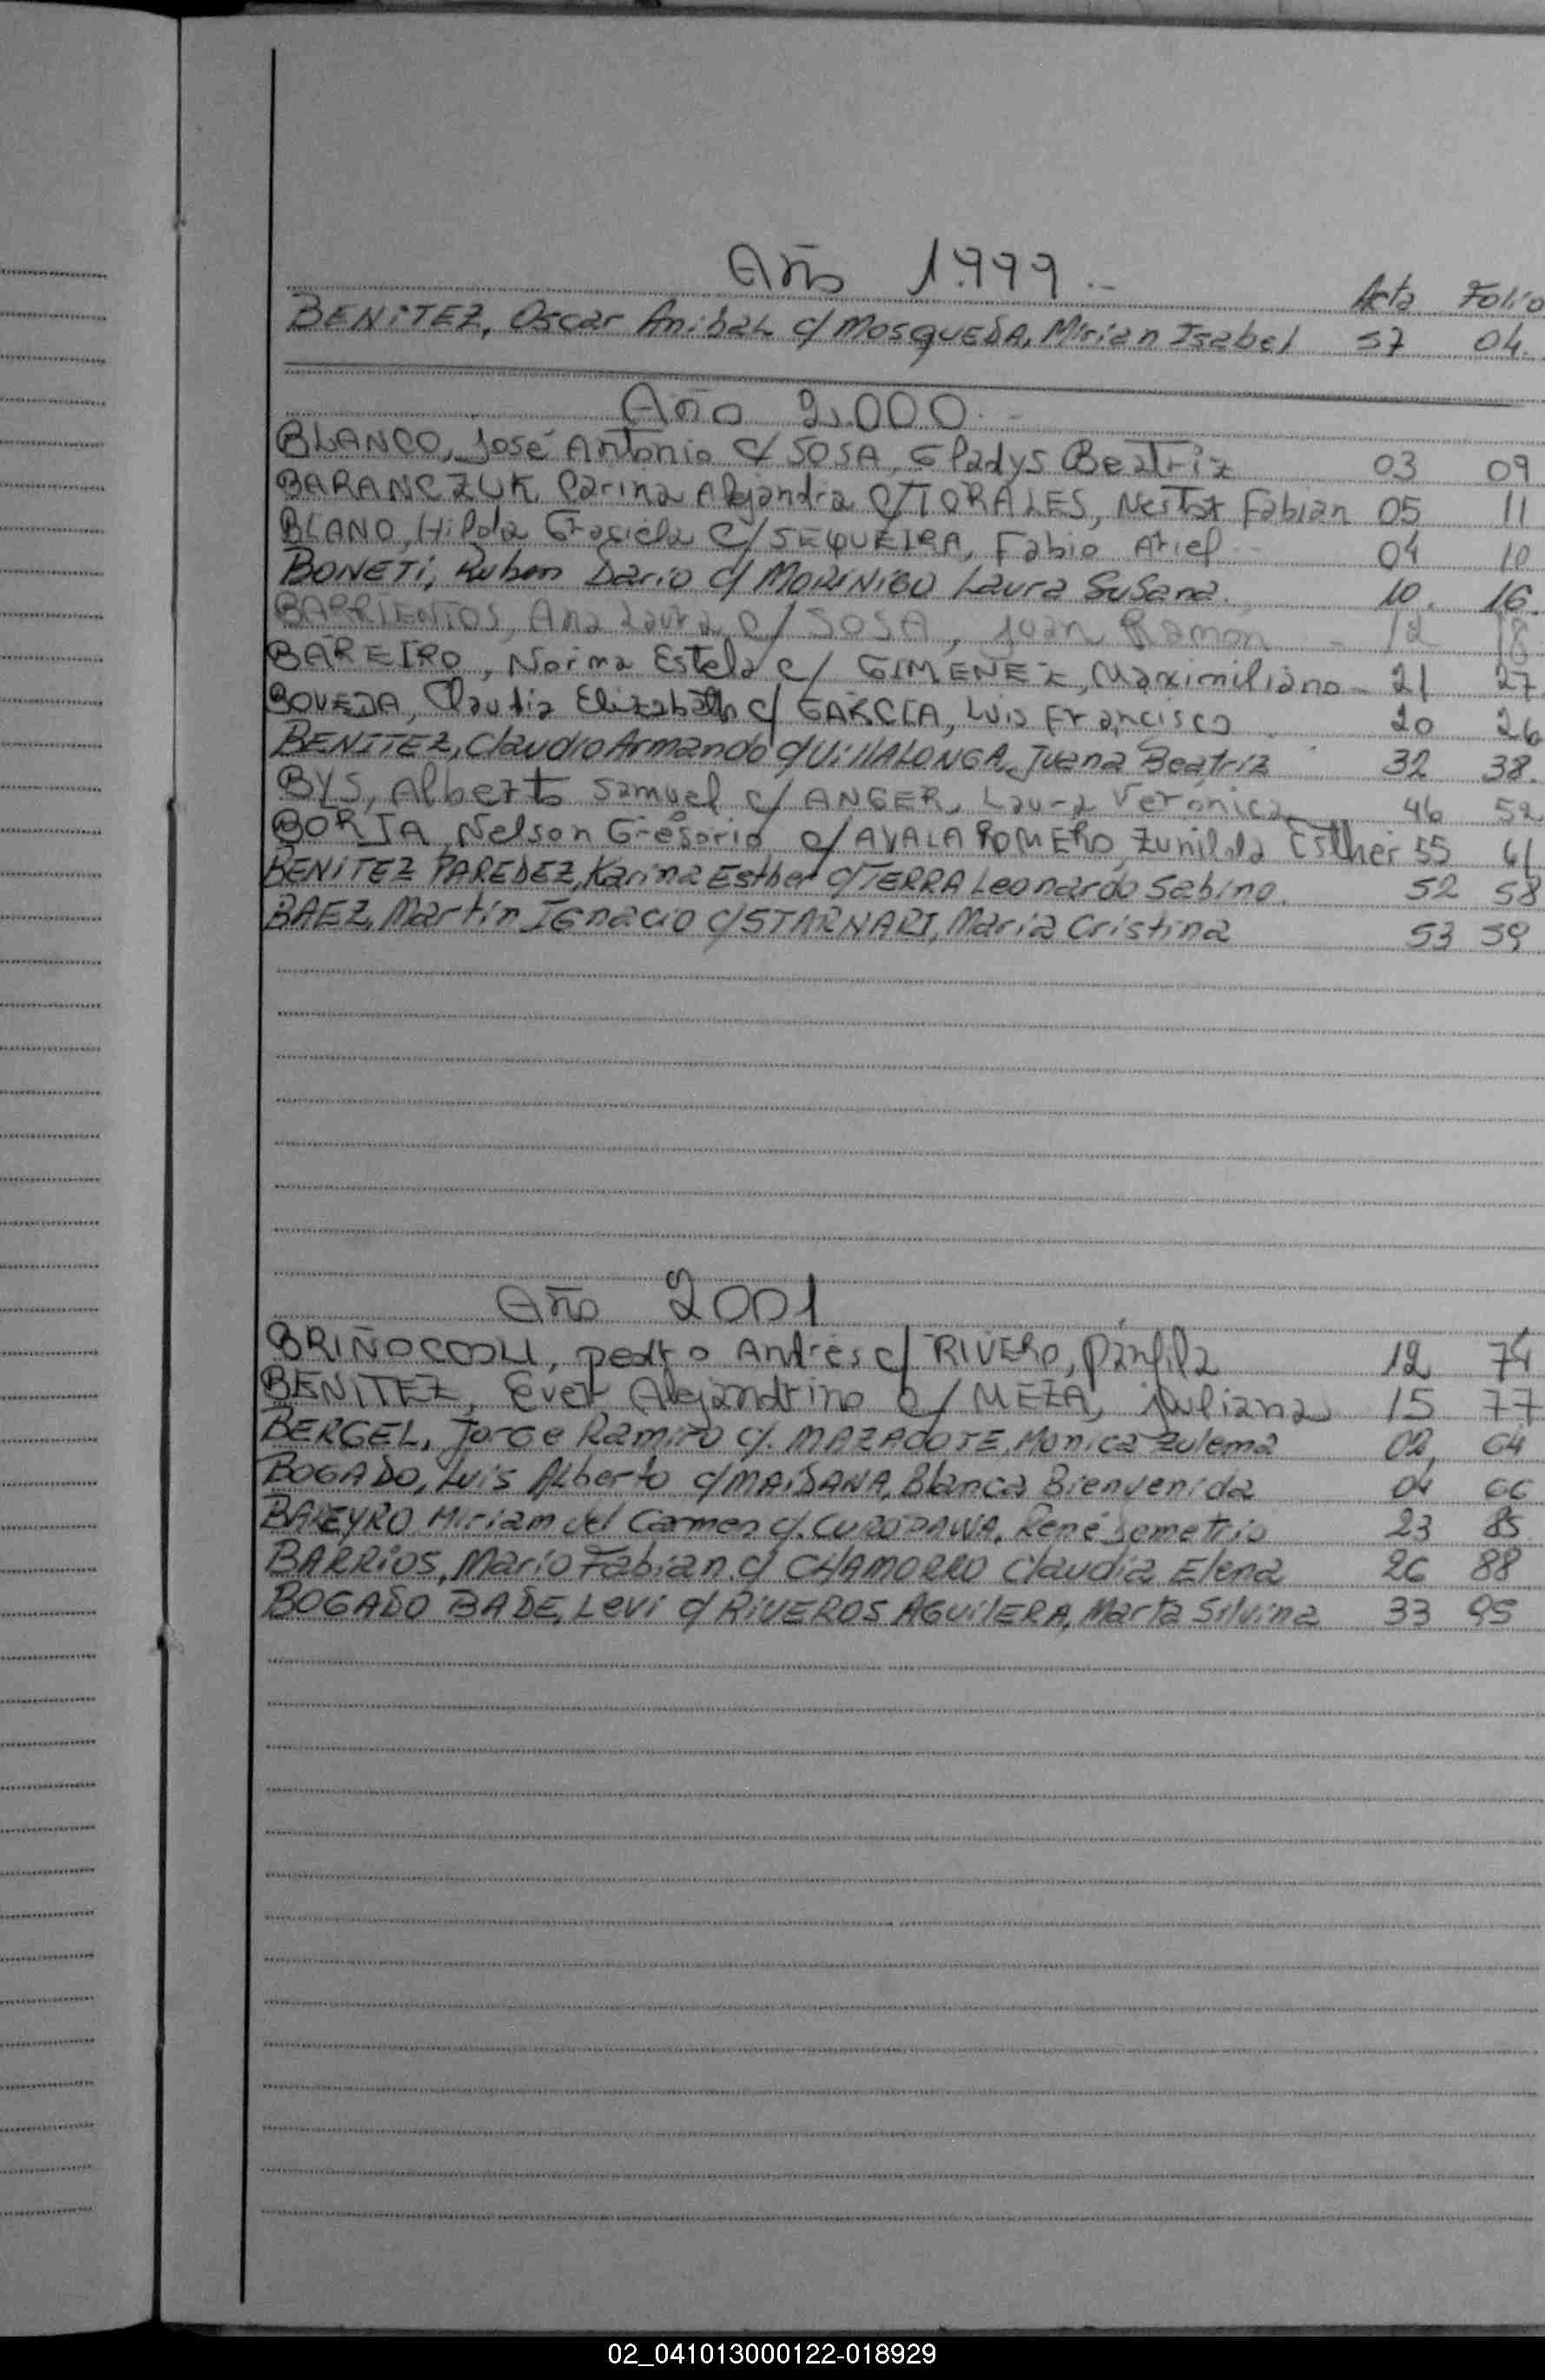 Año 1.999.-
Acta Folio
BENITEZ, Oscar Anibal c/ MosqUEDA, Mirian Isabel 57 04.
Año 2.000.-
BLANCO, José Antonio c/ SOSA, Gladys Beatriz 03 09
BARANCZUK, Carina Alejandra c/ TORALES, Nestor Fabian 05 11
BLANO, Hilda Graciela c/ SEQUEIRA, Fabio Ariel 04 10
BONETi, Ruben Dario c/ MORINIGO Laura Susana. 10. 16.
BARRIENTOS, Ana Laura c/ SOSA, Juan Ramon - 12 18
BAREIRO, Norma Estela c/ GIMENEZ, Maximiliano - 21 27
BOVEDA, Claudia Elizabeth c/ GARCIA, Luis Francisco 20 26
BENITEZ, Claudio Armando c/ VillALONGA, Juana Beatriz 32 38.
BYS, Alberto Samuel c/ ANGER, Laura Veronica 46 52
BORJA, Nelson Gregorio c/ AYALA ROMERO, Zunilda Esther 55 61
BENITEZ PAREDEZ, Karina Esther c/ TERRA Leonardo Sabino. 52 58
BAEZ, Martin IGnacio c/ STARNARI, Maria Cristina 53 59
Año 2001
BRIÑOCCOLI, pedro Andrés c/ RIVERO, Pánfila 12 74
BENITEZ, Ever Alejandrino c/ MEZA, Juliana 15 77
BERGEL, Jorge Ramiro c/. MAZACOTE, Monica Zulema 02 64
BOGADO, Luis Alberto c/ MAiDANA, Blanca Bienvenida 04 66
BAREYRO Miriam del Carmen c/. René Demetrio 23 85
BARRiOS, Mario Fabian c/ CHAMORRO Claudia Elena 26 88
BOGADO BADE, Levi c/ RiVEROS AGUilERA, Marta Silvina 33 95
02_041013000122-018929